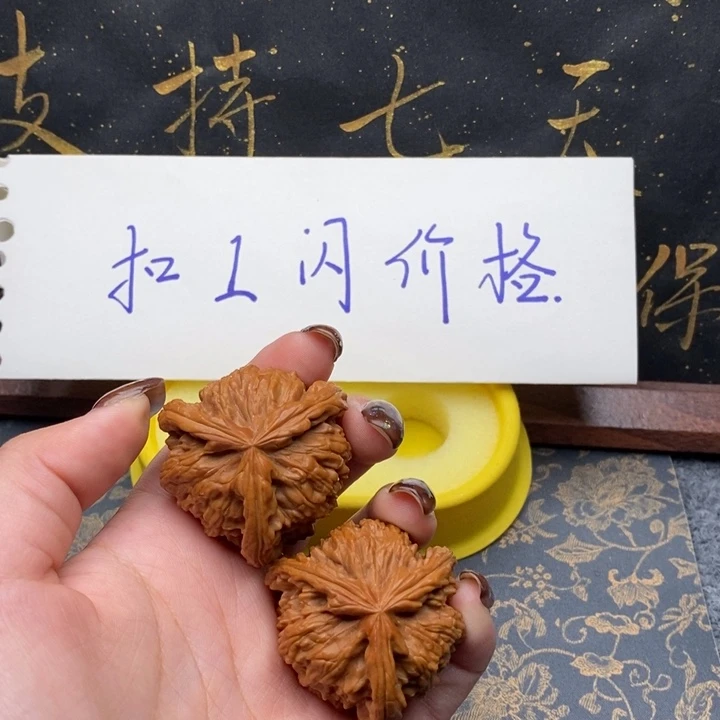 支持七天
扣1闪价格.
保